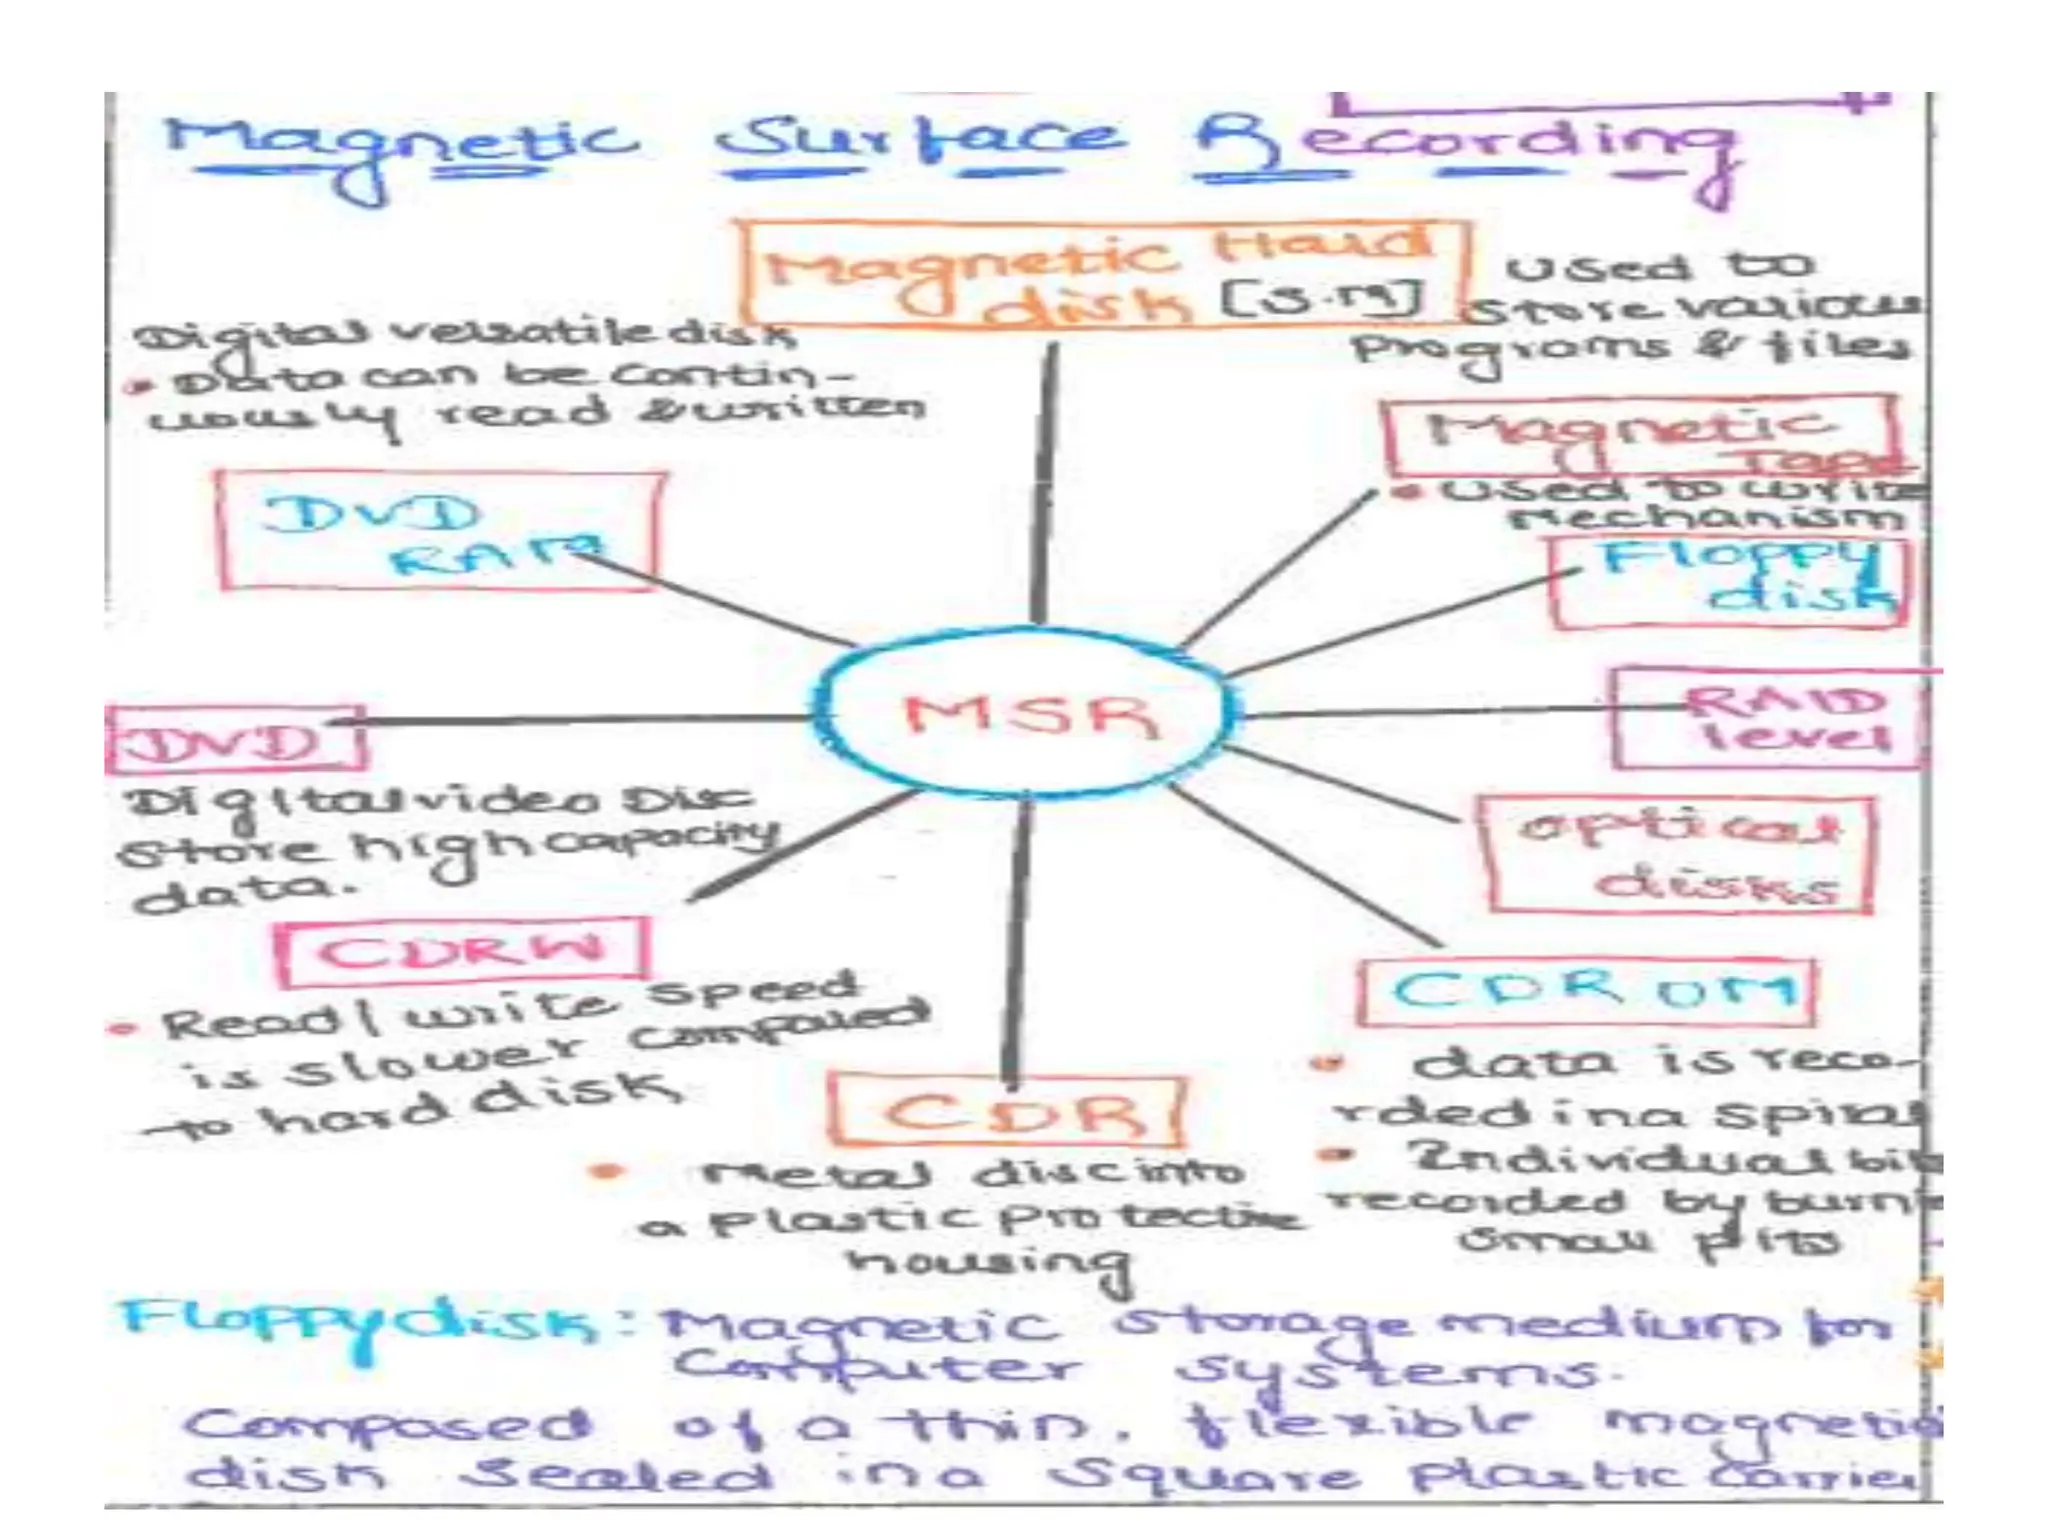 Magnetic Surface Recording
Magnetic Hard
disk [S.M]
Used to
store various
programs & files
Digital versatile disk
• Data can be contin-
uously read & written
Magnetic
Tape
• Used to write
Mechanism
DVD
RAM
Floppy
disk
MSR
RAID
level
DVD
Digital video Disc
store high capacity
data.
optical
disks
CDRW
• Read/write speed
is slower compared
to hard disk
CDROM
• data is reco-
rded in a spiral
• Individual bit
recorded by
small pits
CDR
• Metal disc into
a plastic protective
housing
Floppy disk: Magnetic storage medium for
computer systems.
Composed of a thin, flexible magnetic
disk sealed in a square plastic carrier